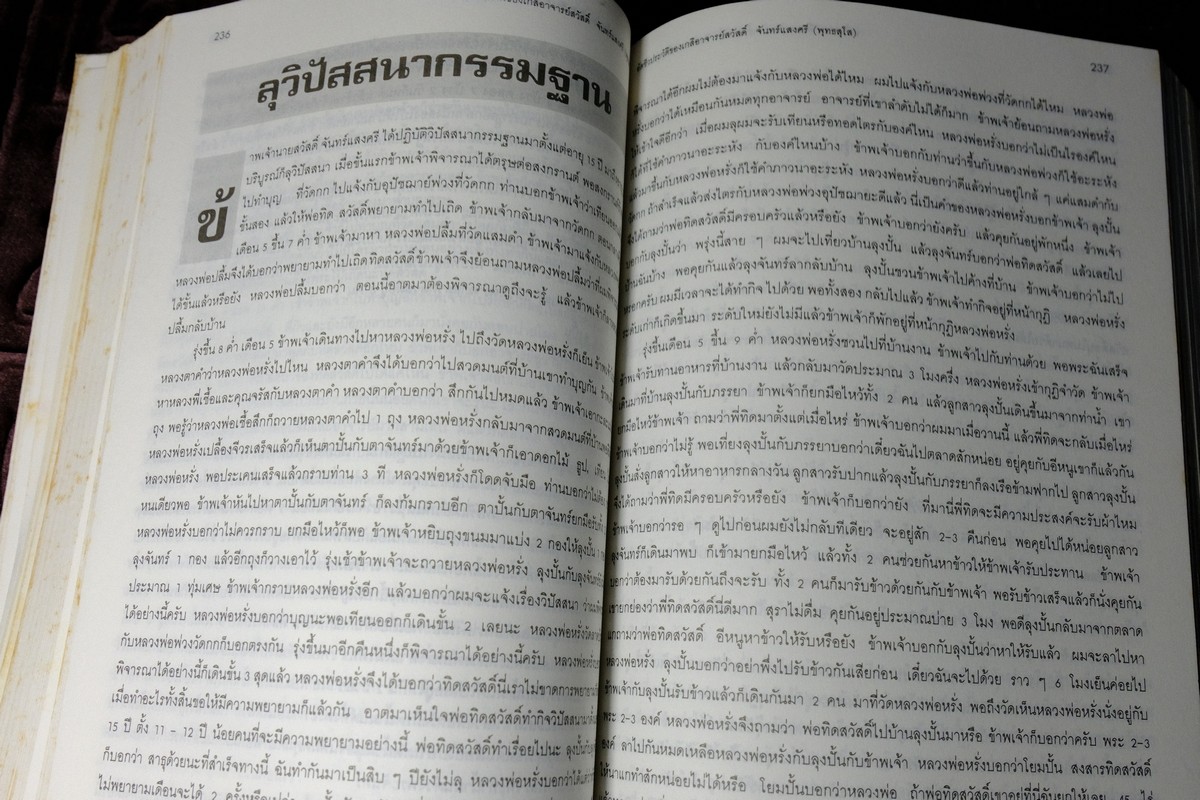 236
ลุวิปัสสนากรรมฐาน
ข้าพเจ้านายสวัสดิ์ จันทร์แสงศรี ได้ปฏิบัติวิปัสสนากรรมฐานมาตั้งแต่อายุ 15 ปี
บริบูรณ์ก็ลุวิปัสสนา เมื่อขั้นแรกข้าพเจ้าพิจารณาได้ตรุษต่อสงกรานต์
ไปทำบุญ ที่วัดกก ไปแจ้งกับอุปัชฌาย์พ่วงที่วัดกก ท่านบอกข้าพเจ้าว่าเทียน
ขั้นสอง แล้วให้พ่อทิด สวัสดิ์พยายามทำไปเถิด ข้าพเจ้ากลับมาจากวัดกก
เดือน 5 ขึ้น 7 ค่ำ ข้าพเจ้ามาหา หลวงพ่อปลื้มที่วัดแสมดำ ข้าพเจ้ามาแจ้งกับ
หลวงพ่อปลื้มจึงได้บอกว่าพยายามทำไปเถิดทิดสวัสดิ์ ข้าพเจ้าจึงย้อนถามหลวงพ่อปลื้มว่า
ได้ขั้นแล้วหรือยัง หลวงพ่อปลื้มบอกว่า ตอนนี้อาตมาต้องพิจารณาดูถึงจะรู้ แล้วข้าพเจ้า
ปลื้มกลับบ้าน
รุ่งขึ้น 8 ค่ำ เดือน 5 ข้าพเจ้าเดินทางไปหาหลวงพ่อหรั่ง ไปถึงวัดหลวงพ่อหรั่งก็เย็น
หลวงตาคำว่าหลวงพ่อหรั่งไปไหน หลวงตาคำจึงได้บอกว่าไปสวดมนต์ที่บ้านเขาทำบุญกัน
หาหลวงพี่เชื่อและคุณจรัสกับหลวงตาคำ หลวงตาคำบอกว่า สึกกันไปหมดแล้ว
ถุง พอรู้ว่าหลวงพ่อเชื้อสึกก็ถวายหลวงตาคำไป 1 ถุง หลวงพ่อหรั่งกลับมาจากสวดมนต์ที่บ้าน
หลวงพ่อหรั่งเปลื้องจีวรเสร็จแล้วก็เห็นตาปั้นกับตาจันทร์มาด้วยข้าพเจ้าก็เอาดอกไม้ ธูป,
หลวงพ่อหรั่ง พอประเคนเสร็จแล้วกราบท่าน 3 ที หลวงพ่อหรั่งก็โดดจับมือ ท่านบอกว่า
หนเดียวพอ ข้าพเจ้าหันไปหาตาปั้นกับตาจันทร์ ก็ลงก้มกราบอีก ตาปั้นกับตาจันทร์ยกมือรับ
หลวงพ่อหรั่งบอกว่าไม่ควรกราบ ยกมือไหว้ก็พอ ข้าพเจ้าหยิบถุงขนมมาแบ่ง 2 กองให้ลุงปั้น
ลุงจันทร์ 1 กอง แล้วอีกถุงก็วางเอาไว้ รุ่งเช้าข้าพเจ้าจะถวายหลวงพ่อหรั่ง ลุงปั้นกับลุงจันทร์
ประมาณ 1 ทุ่มเศษ ข้าพเจ้ากราบหลวงพ่อหรั่งอีก แล้วบอกว่าผมจะแจ้งเรื่องวิปัสสนา
ได้อย่างนี้ครับ หลวงพ่อหรั่งบอกว่าบุญนะพอเทียนออกก็เดินขั้น 2 เลยนะ หลวงพ่อหรั่ง
กับหลวงพ่อพ่วงวัดกกก็บอกตรงกัน รุ่งขึ้นมาอีกคืนหนึ่งก็พิจารณาได้อย่างนี้ครับ หลวงพ่อหรั่ง
พิจารณาได้อย่างนี้ก็เดินขั้น 3 สุดแล้ว หลวงพ่อหรั่งจึงได้บอกว่าทิดสวัสดิ์นี่เราไม่ขาดการพยายาม
เมื่อทำอะไรทั้งสิ้นขอให้มีความพยายามก็แล้วกัน อาตมาเห็นใจพ่อทิดสวัสดิ์ทำกิจวิปัสสนามา
15 ปี ตั้ง 11 – 12 ปี น้อยคนที่จะมีความพยายามอย่างนี้ พ่อทิดสวัสดิ์ทำเรื่อยไปนะ
ก็บอกว่า สาธุด้วยนะที่สำเร็จทางนี้ ฉันทำกันมาเป็นสิบ ๆ ปียังไม่ลุ หลวงพ่อหรั่งบอกว่า
ไม่พยายามเดือนจะได้ 2 ครั้งหรือ
ประวัติของเกสิอาจารย์สวัสดิ์ จันทร์แสงศรี (พุทธสุโส)
237
พิจารณาได้อีกผมไม่ต้องมาแจ้งกับหลวงพ่อได้ไหม ผมไปแจ้งกับหลวงพ่อพ่วงที่วัดกกได้ไหม หลวงพ่อ
หรั่งบอกว่าได้เหมือนกันหมดทุกอาจารย์ อาจารย์ที่เขาลำดับไม่ได้ก็มาก ข้าพเจ้าย้อนถามหลวงพ่อหรั่ง
ให้เข้าใจดีอีกว่า เมื่อผมลุผมจะรับเทียนหรือทอดไตรกับองค์ไหน หลวงพ่อหรั่งบอกว่าไม่เป็นไรองค์ไหน
ก็ได้ที่ใช้คำภาวนาอะระหัง กับองค์ไหนบ้าง ข้าพเจ้าบอกกับท่านว่าขึ้นกับหลวงพ่อพ่วงก็ใช้อะระหัง
แล้วมาขึ้นกับหลวงพ่อหรั่งก็ใช้คำภาวนาอะระหัง หลวงพ่อหรั่งบอกว่าดีแล้วท่านอยู่ใกล้ ๆ แค่แสมดำกับ
วัดกก ถ้าสำเร็จแล้วส่งไตรกับหลวงพ่อพ่วงอุปัชฌายะดีแล้ว นี่เป็นคำของหลวงพ่อหรั่งบอกข้าพเจ้า ลุงปั้น
จึงได้ถามว่าพ่อทิดสวัสดิ์มีครอบครัวแล้วหรือยัง ข้าพเจ้าบอกว่ายังครับ แล้วคุยกันอยู่พักหนึ่ง ข้าพเจ้า
บอกกับลุงปั้นว่า พรุ่งนี้สาย ๆ ผมจะไปเที่ยวบ้านลุงปั้น แล้วลุงจันทร์บอกว่าพ่อทิดสวัสดิ์ แล้วเลยไป
บ้านฉันบ้าง พอคุยกันแล้วลุงจันทร์ลากลับบ้าน ลุงปั้นชวนข้าพเจ้าไปค้างที่บ้าน ข้าพเจ้าบอกว่าไม่ไป
หรอกครับ ผมมีเวลาจะได้ทำกิจ ไปด้วย พอทั้งสอง กลับไปแล้ว ข้าพเจ้าทำกิจอยู่ที่หน้ากุฏิ หลวงพ่อหรั่ง
ระดับเก่าก็เกิดขึ้นมา ระดับใหม่ยังไม่มีแล้วข้าพเจ้าก็พักอยู่ที่หน้ากุฏิหลวงพ่อหรั่ง
รุ่งขึ้นเดือน 5 ขึ้น 9 ค่ำ หลวงพ่อหรั่งชวนไปที่บ้านงาน ข้าพเจ้าไปกับท่านด้วย พอพระฉันเสร็จ
ข้าพเจ้ารับทานอาหารที่บ้านงาน แล้วกลับมาวัดประมาณ 3 โมงครึ่ง หลวงพ่อหรั่งเข้ากุฏิจำวัด ข้าพเจ้า
เดินมาที่บ้านลุงปั้นกับภรรยา ข้าพเจ้าก็ยกมือไหว้ทั้ง 2 คน แล้วลูกสาวลุงปั้นเดินขึ้นมาจากท่าน้ำ เขา
ยกมือไหว้ข้าพเจ้า ถามว่าพี่ทิดมาตั้งแต่เมื่อไหร่ ข้าพเจ้าบอกว่าผมมาเมื่อวานนี้ แล้วพี่ทิดจะกลับเมื่อไหร่
ข้าพเจ้าบอกว่าไม่รู้ พอเที่ยงลุงปั้นกับภรรยาบอกว่าเดี๋ยวฉันไปตลาดสักหน่อย อยู่คุยกับอีหนูเขาก็แล้วกัน
ลุงปั้นสั่งลูกสาวให้หาอาหารกลางวัน ลูกสาวรับปากแล้วลุงปั้นกับภรรยาก็ลงเรือข้ามฟากไป ลูกสาวลุงปั้น
จึงได้ถามว่าพี่ทิดมีครอบครัวหรือยัง ข้าพเจ้าก็บอกว่ายัง ที่มานี่พี่ทิดจะมีความประสงค์จะรับผ้าไหม
ข้าพเจ้าบอกว่ารอ ๆ ดูไปก่อนผมยังไม่กลับทีเดียว จะอยู่สัก 2–3 คืนก่อน พอคุยไปได้หน่อยลูกสาว
ลุงจันทร์ก็เดินมาพบ ก็เข้ามายกมือไหว้ แล้วทั้ง 2 คนช่วยกันหาข้าวให้ข้าพเจ้ารับประทาน ข้าพเจ้า
บอกว่าต้องมารับด้วยกันถึงจะรับ ทั้ง 2 คนก็มารับข้าวด้วยกันกับข้าพเจ้า พอรับข้าวเสร็จแล้วก็นั่งคุยกัน
เขายกย่องว่าพี่ทิดสวัสดิ์นี่ดีมาก สุราไม่ดื่ม คุยกันอยู่ประมาณบ่าย 3 โมง พอดีลุงปั้นกลับมาจากตลาด
แกถามว่าพ่อทิดสวัสดิ์ อีหนูหาข้าวให้รับหรือยัง ข้าพเจ้าบอกกับลุงปั้นว่าหาให้รับแล้ว ผมจะลาไปหา
หลวงพ่อหรั่ง ลุงปั้นบอกว่าอย่าพึ่งไปรับข้าวกันเสียก่อน เดี๋ยวฉันจะไปด้วย ราว ๆ 6 โมงเย็นค่อยไป
ข้าพเจ้ากับลุงปั้นรับข้าวแล้วก็เดินกันมา 2 คน มาที่วัดหลวงพ่อหรั่ง พอถึงวัดเห็นหลวงพ่อหรั่งนั่งอยู่กับ
พระ 2–3 องค์ หลวงพ่อหรั่งจึงถามว่า พ่อทิดสวัสดิ์ไปบ้านลุงปั้นมาหรือ ข้าพเจ้าก็บอกว่าครับ พระ 2–3
องค์ ลาไปกันหมดเหลือหลวงพ่อหรั่งกับลุงปั้นกับข้าพเจ้า หลวงพ่อหรั่งบอกว่าโยมปั้น สงสารทิดสวัสดิ์
ให้นาแกทำสักหน่อยไม่ได้หรือ โยมปั้นบอกว่าหลวงพ่อ ถ้าพ่อทิดสวัสดิ์เขาอยู่ที่นี่ฉันยกให้เลย 45 ไร่